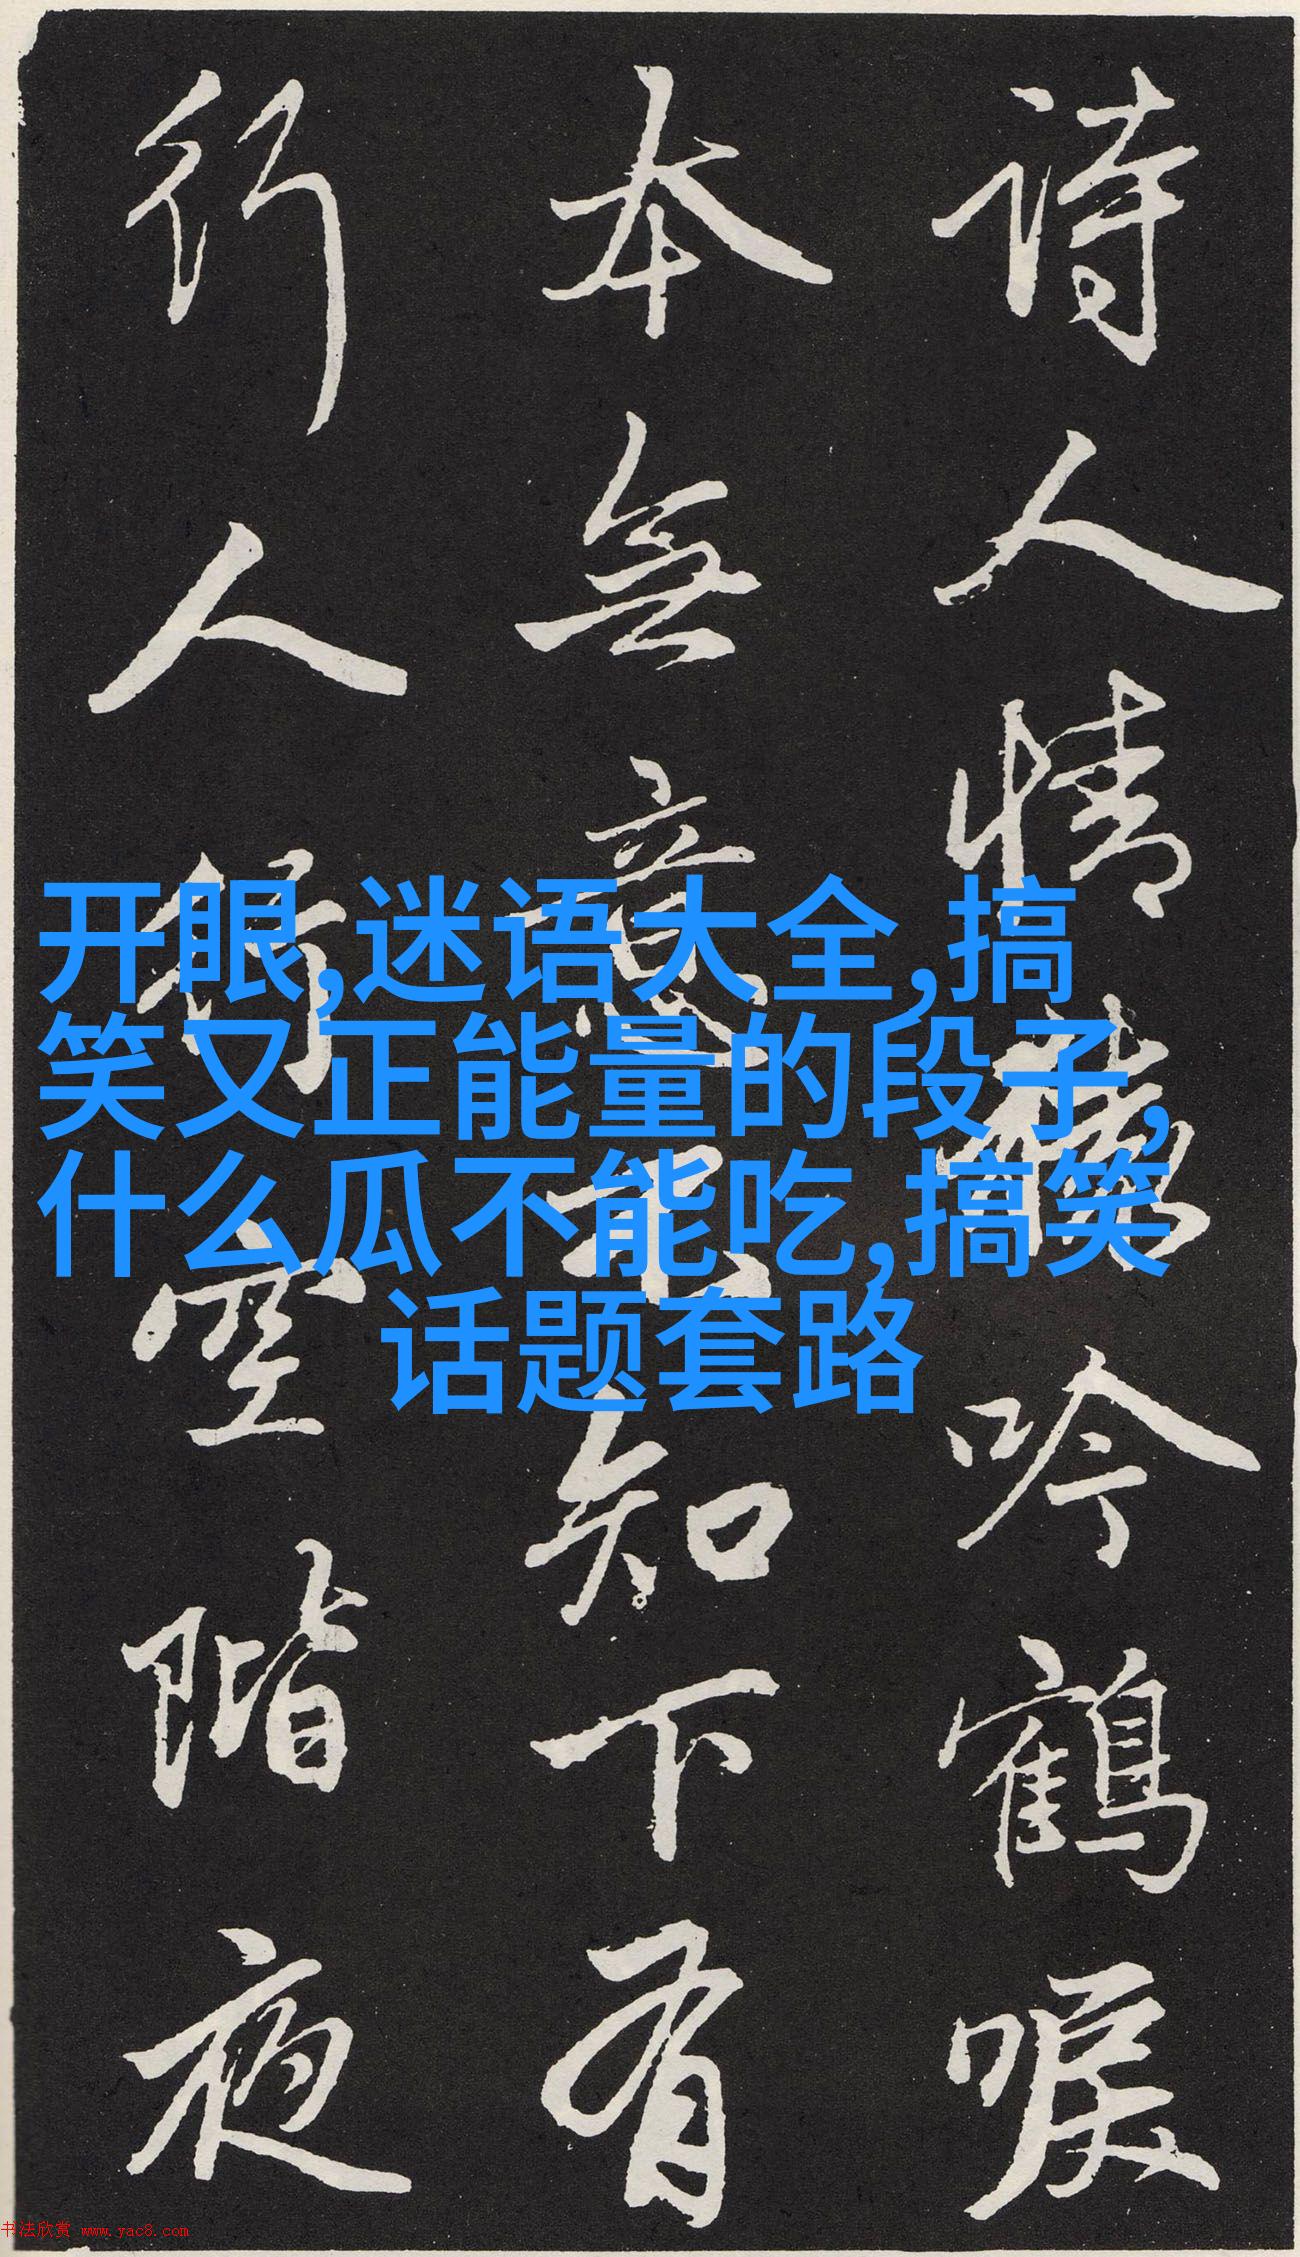 詩人情猿吟鶴唳
本無意不知下有
行人行空階夜
开眼,迷语大全,搞
笑又正能量的段子,
什么瓜不能吃,搞笑
话题套路
书法欣赏 www.yac8.com